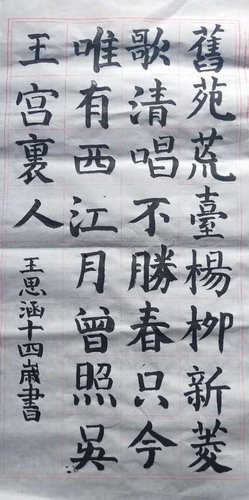 舊苑荒臺楊柳新菱
歌清唱不勝春只今
唯有西江月曾照吳
王宮裏人
王思涵十四歲書